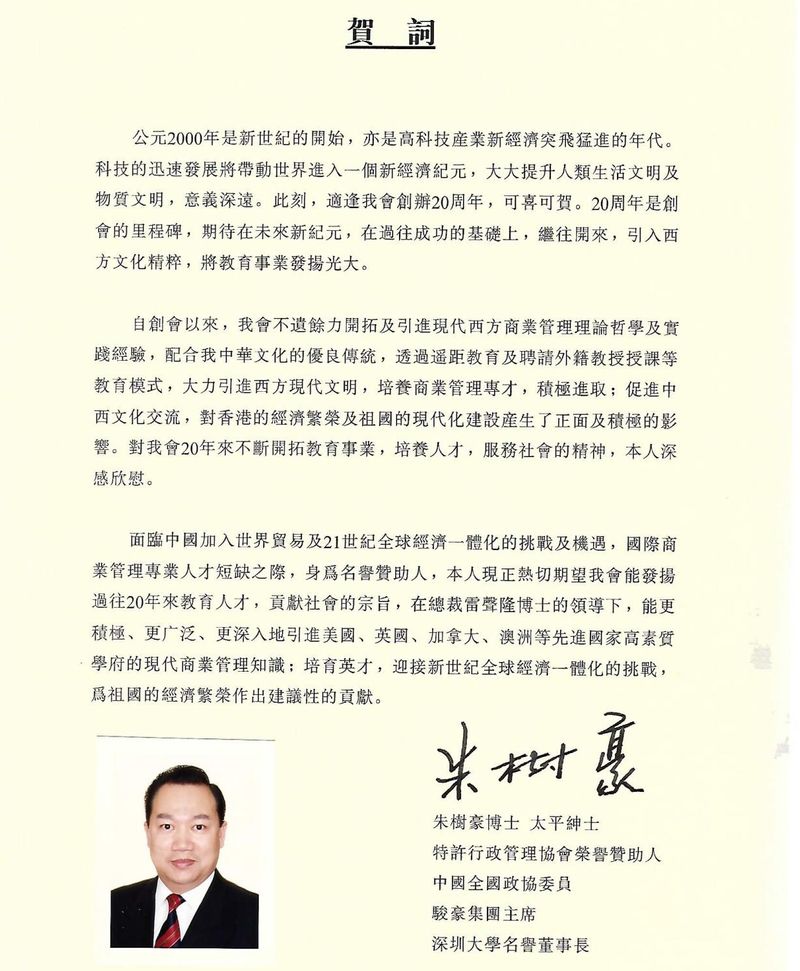 賀 詞
公元2000年是新世紀的開始，亦是高科技産業新經濟突飛猛進的年代。
科技的迅速發展將帶動世界進入一個新經濟紀元，大大提升人類生活文明及
物質文明，意義深遠。此刻，適逢我會創辦20周年，可喜可賀。20周年是創
會的里程碑，期待在未來新紀元，在過往成功的基礎上，繼往開來，引入西
方文化精粹，將教育事業發揚光大。
自創會以來，我會不遺餘力開拓及引進現代西方商業管理理論哲學及實
踐經驗，配合我中華文化的優良傳統，透過遥距教育及聘請外籍教授授課等
教育模式，大力引進西方現代文明，培養商業管理專才，積極進取；促進中
西文化交流，對香港的經濟繁榮及祖國的現代化建設産生了正面及積極的影
響。對我會20年來不斷開拓教育事業，培養人才，服務社會的精神，本人深
感欣慰。
面臨中國加入世界貿易及21世紀全球經濟一體化的挑戰及機遇，國際商
業管理專業人才短缺之際，身爲名譽贊助人，本人現正熱切期望我會能發揚
過往20年來教育人才，貢獻社會的宗旨，在總裁雷聲隆博士的領導下，能更
積極、更广泛、更深入地引進美國、英國、加拿大、澳洲等先進國家高素質
學府的現代商業管理知識；培育英才，迎接新世紀全球經濟一體化的挑戰，
爲祖國的經濟繁榮作出建議性的貢獻。
朱樹豪
朱樹豪博士 太平紳士
特許行政管理協會榮譽贊助人
中國全國政協委員
駿豪集團主席
深圳大學名譽董事長